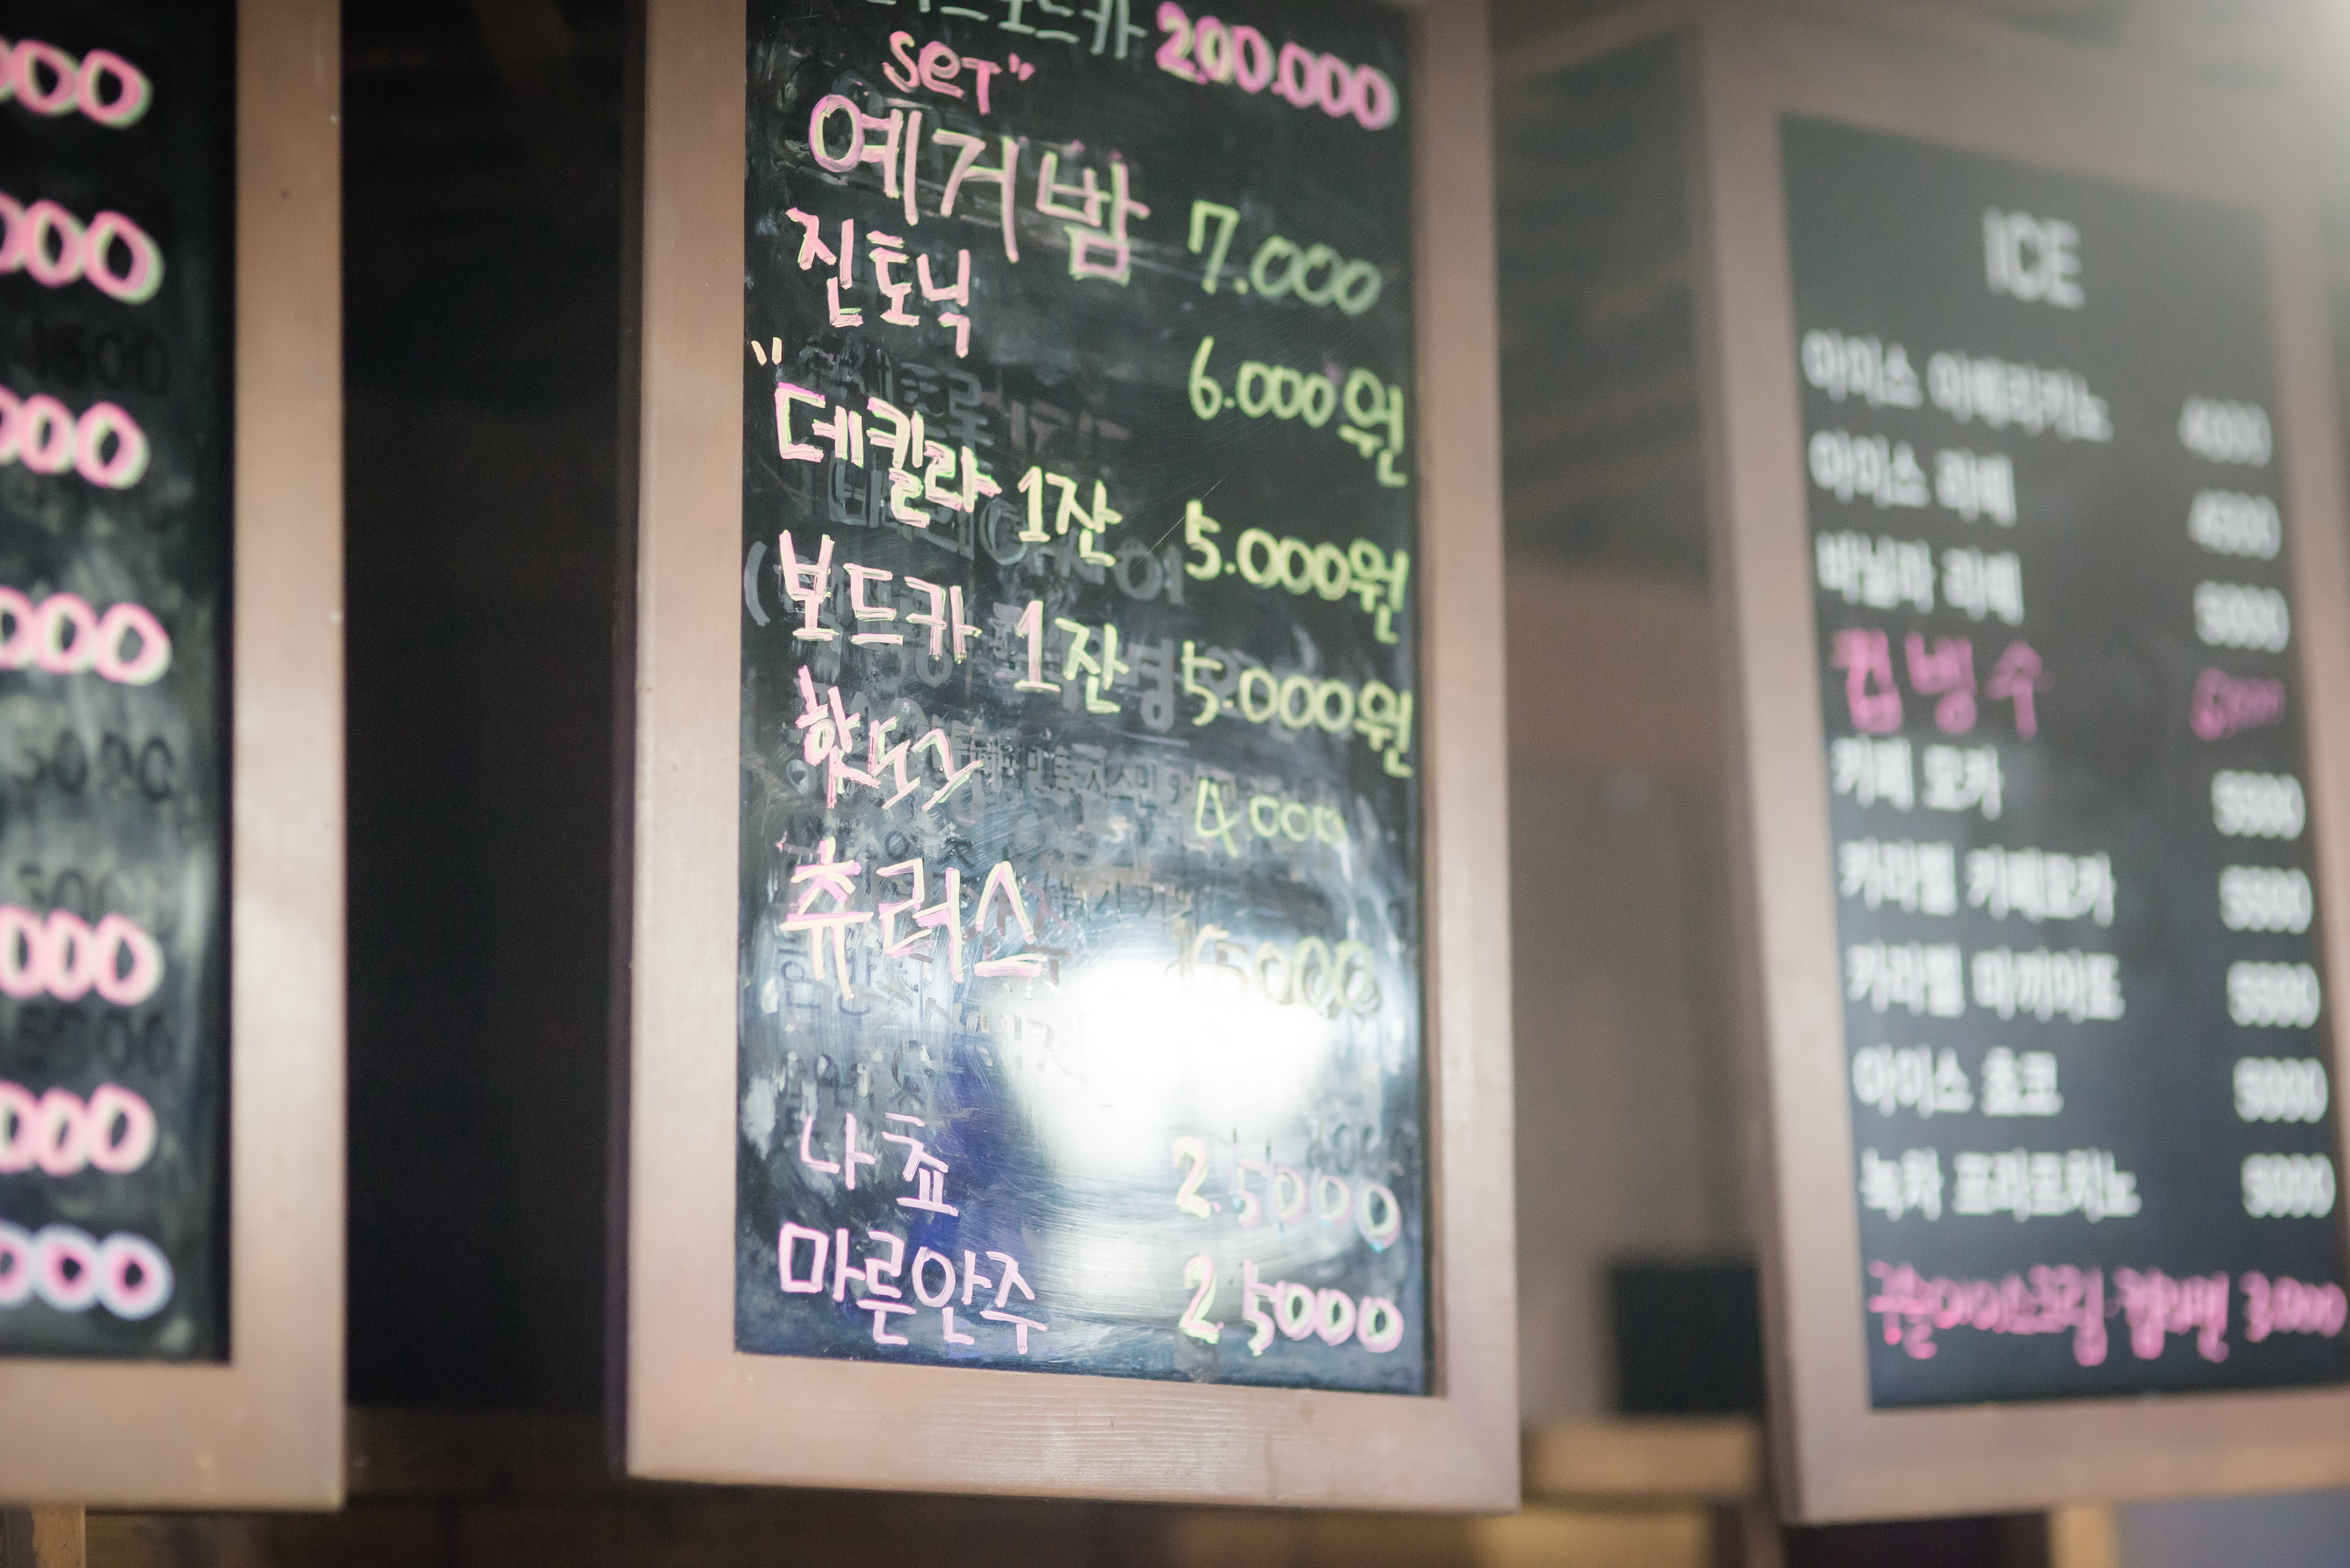 000
000
000
000
000
000
000
보드카 200.000
SET"
예거밤 7.000
진토닉 6.000원
"
데킬라 1잔 5.000원
보드카 1잔 5.000원
핫도그 4000
츄러스 15000
나쵸 25000
마른안주 25000
ICE
아이스 아메리카노 4000
아이스 라떼 4500
바닐라 라떼 5000
컵빙수
카페 모카 5500
카라멜 카페모카 5500
카라멜 마끼아또 5500
아이스 초코 5000
녹차 프라푸치노 5000
구슬아이스크림 3.000